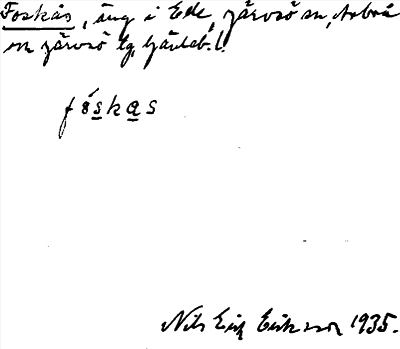 Foskås, äng i Ede, Järvsö sn, Arbrå
och Järvsö tg, Gävleb. l.
fòskas
Nils Erik Eriksson 1935.